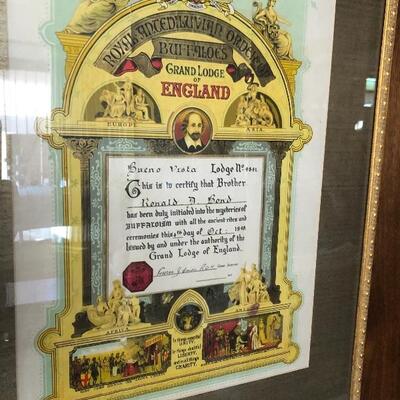 ROYAL ANTEDILUVIAN ORDER OF
BUFFALOES
GRAND LODGE
OF
ENGLAND
EUROPE
ASIA
Buena Vista Lodge No
This is to certify that Brother
Ronald A. Bond
has been duly initiated into the mysteries of
BUFFALOISM with all the ancient rites and
ceremonies this day of Oct. 19
Issued by and under the authority of the
Grand Lodge of England.
AFRICA
In things essential
UNITY
In things doubtful
LIBERTY
and in all things
CHARITY.